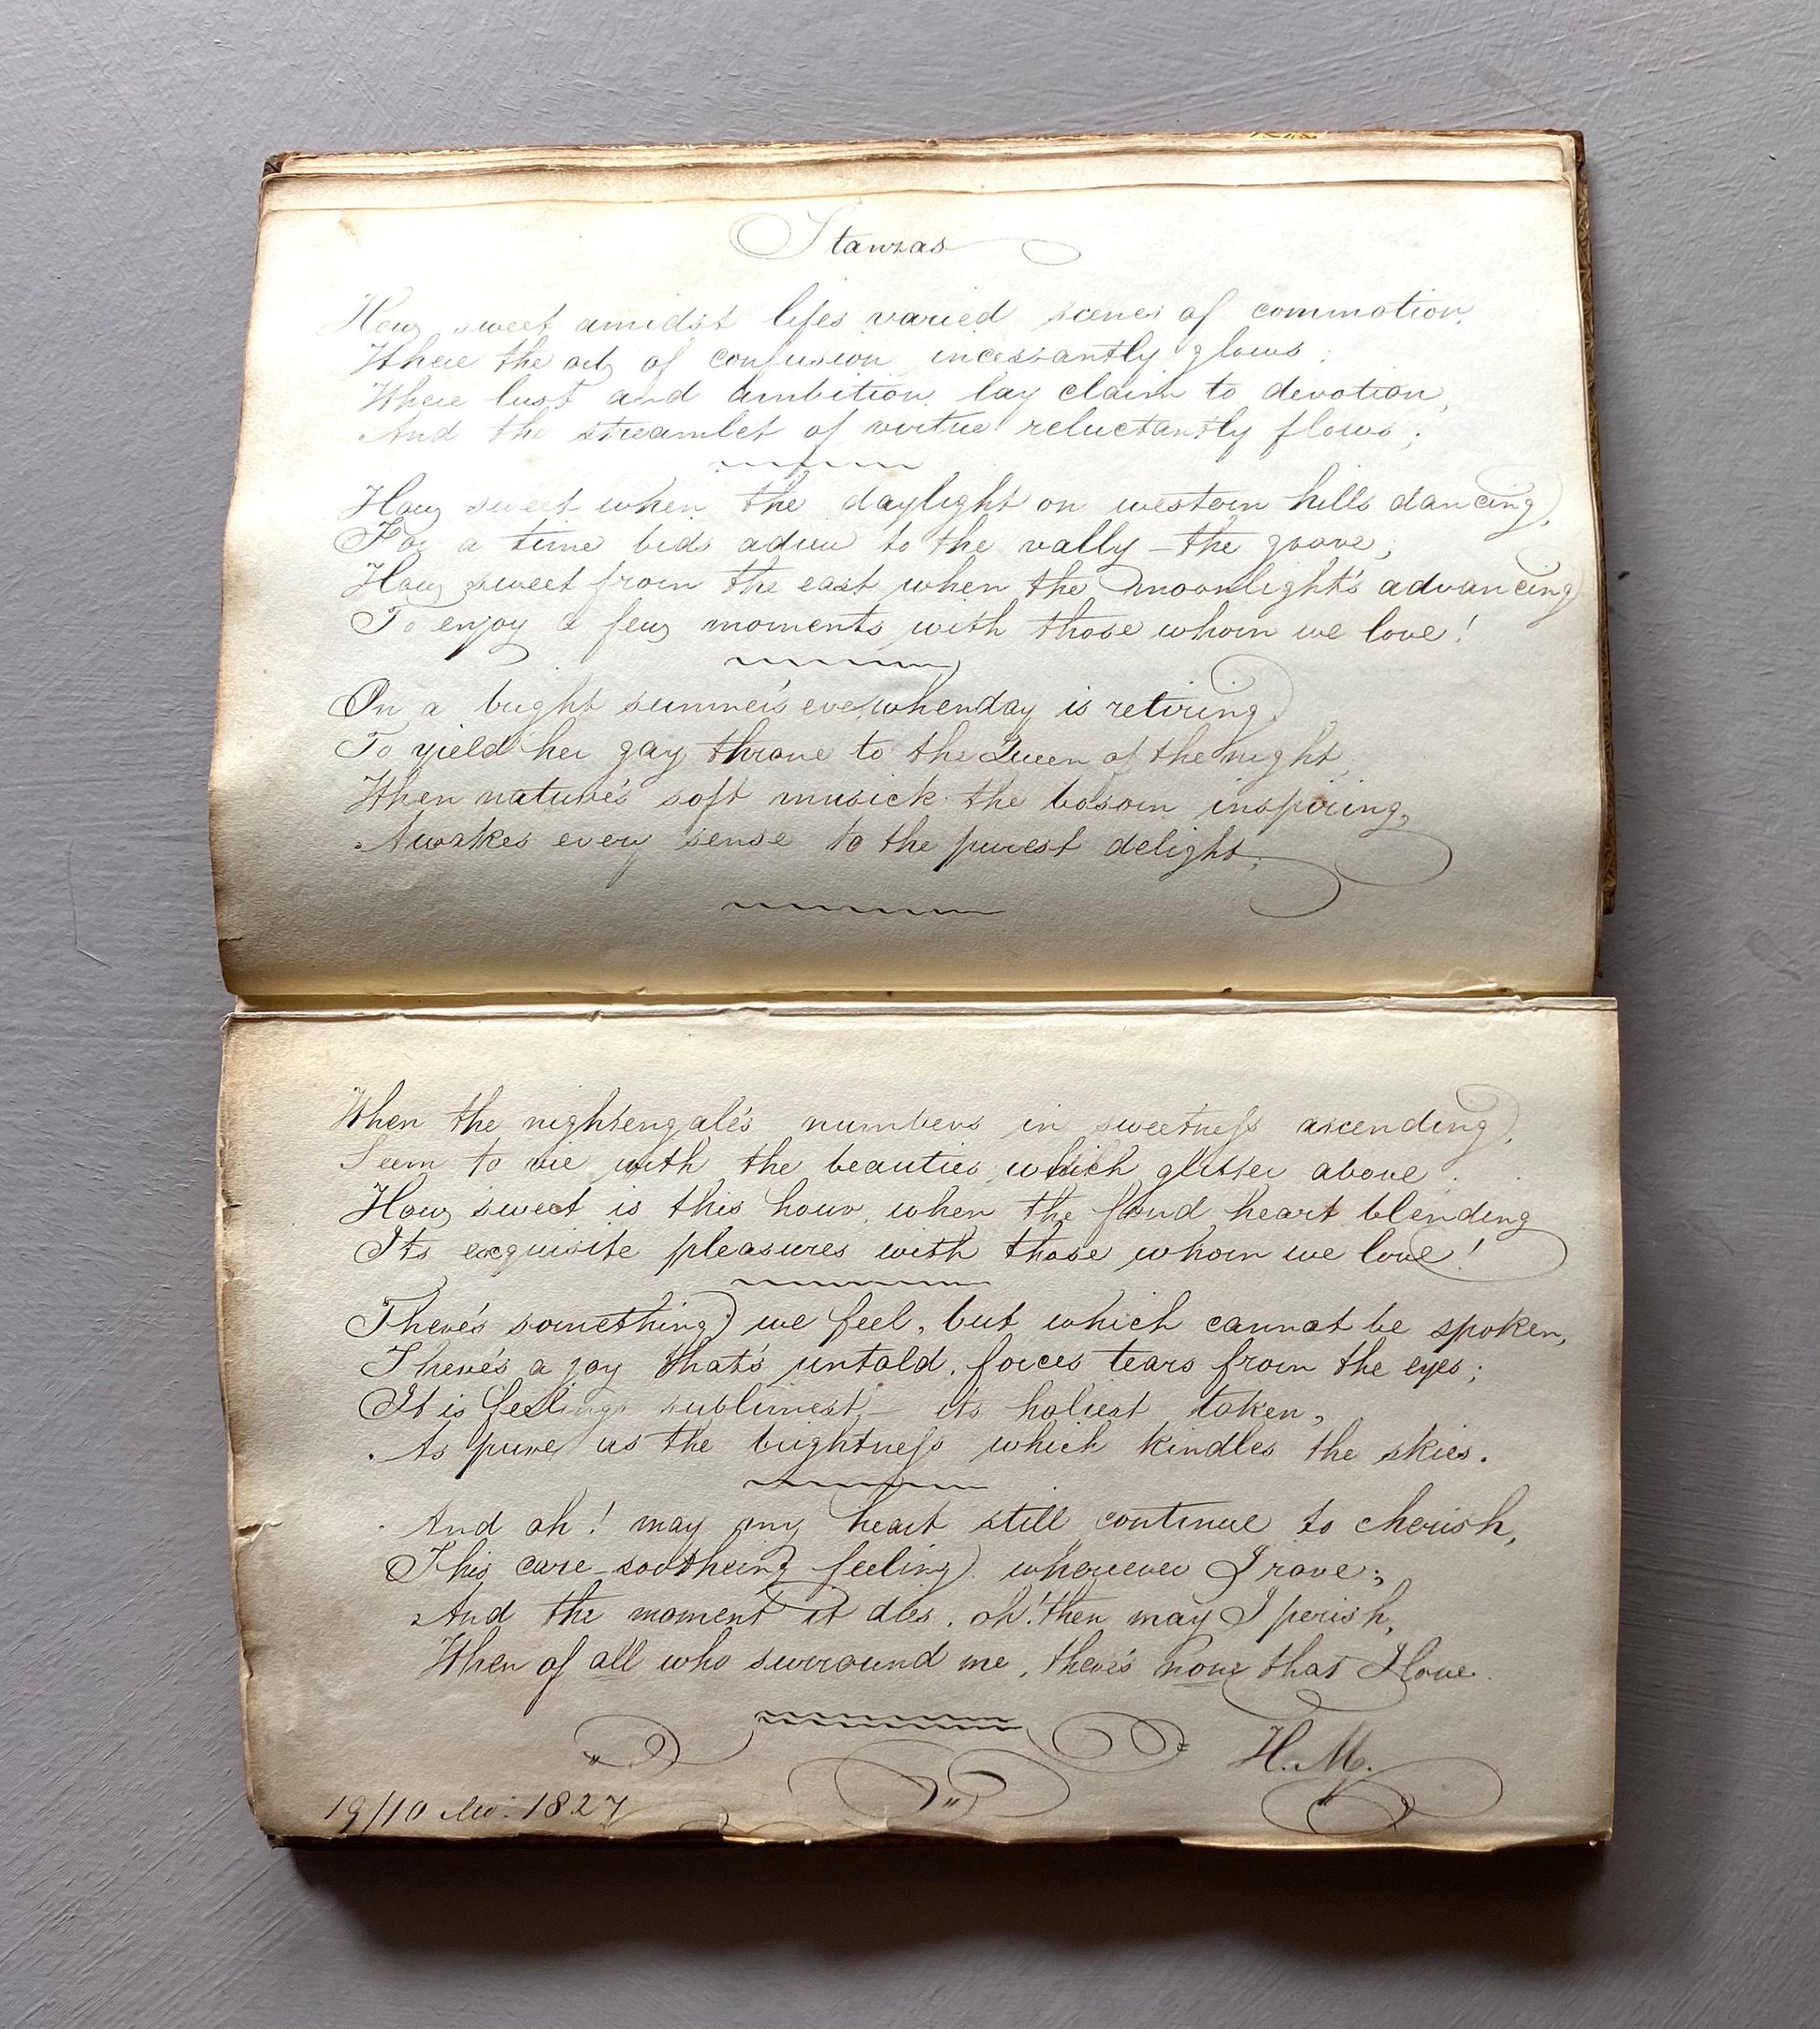 Stanzas
How sweet amidst lifes varied scenes of commotion,
Where the orb of confusion incessantly glows;
Where lust and ambition lay claim to devotion,
And the streamlet of virtue reluctantly flows;
How sweet when the daylight on western hills dancing,
For a time bids adieu to the vally – the grove,
How sweet from the east when the moonlight's advancing
To enjoy a few moments with those whom we love!
On a bright summer's eve, when day is retiring,
To yield her gay throne to the Queen of the night,
When nature's soft musick the bosom inspiring,
Awakes every sense to the purest delight;
When the nightengale's numbers in sweetneſs ascending,
Seem to vie with the beauties which glitter above;
How sweet is this hour, when the fond heart blending
Its exquisite pleasures with those whom we love!
There's something we feel, but which cannot be spoken,
There's a joy that's untold, forces tears from the eyes;
It is feelings sublimest – its holiest token,
As pure as the brightneſs which kindles the skies.
And oh! may my heart still continue to cherish,
This care-sootheing feeling wherever I rove;
And the moment it dies, oh! then may I perish,
When of all who surround me, there's none that I love.
H. M.
19/10 Mo: 1827